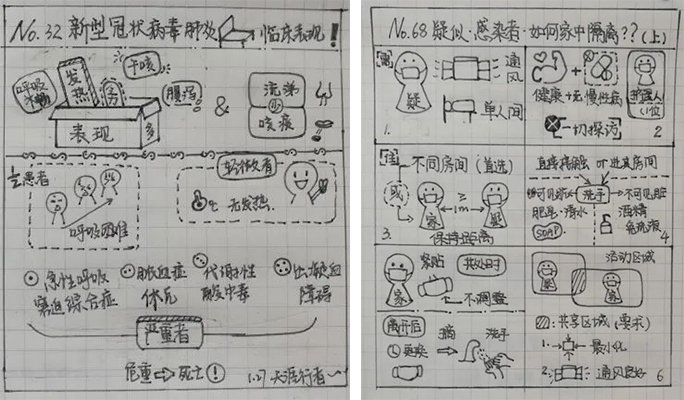 No.32 新型冠状病毒肺炎 临床表现!
呼吸
不畅
发热
干咳
腹泻
表现
多
&
流涕
少
咳痰
½患者
呼吸困难
轻微者
℃ 无发热
急性呼吸
窘迫综合症
脓血症
休克
代谢性
酸中毒
出凝血
障碍
严重者
危重⇒死亡!
1.27 天涯行者~
No.68 疑似·感染者·如何家中隔离??(上)
疑
通
风
单人间
1.
健康+无慢性病
护理人
(1位
一切探访
2
住
不同房间(首选)
或
家
≥
1m
疑
保持距离
3.
直接接触 or 进其房间
可见脏
洗手
不可见脏
肥皂·清水
SOAP
酒精
免洗液
4
家
紧贴
共处时
不调整
离开后
①更换
摘
洗手
活动区域
疑
家
:共享区域(要求)
1. 最小化
2. 通风良好
6